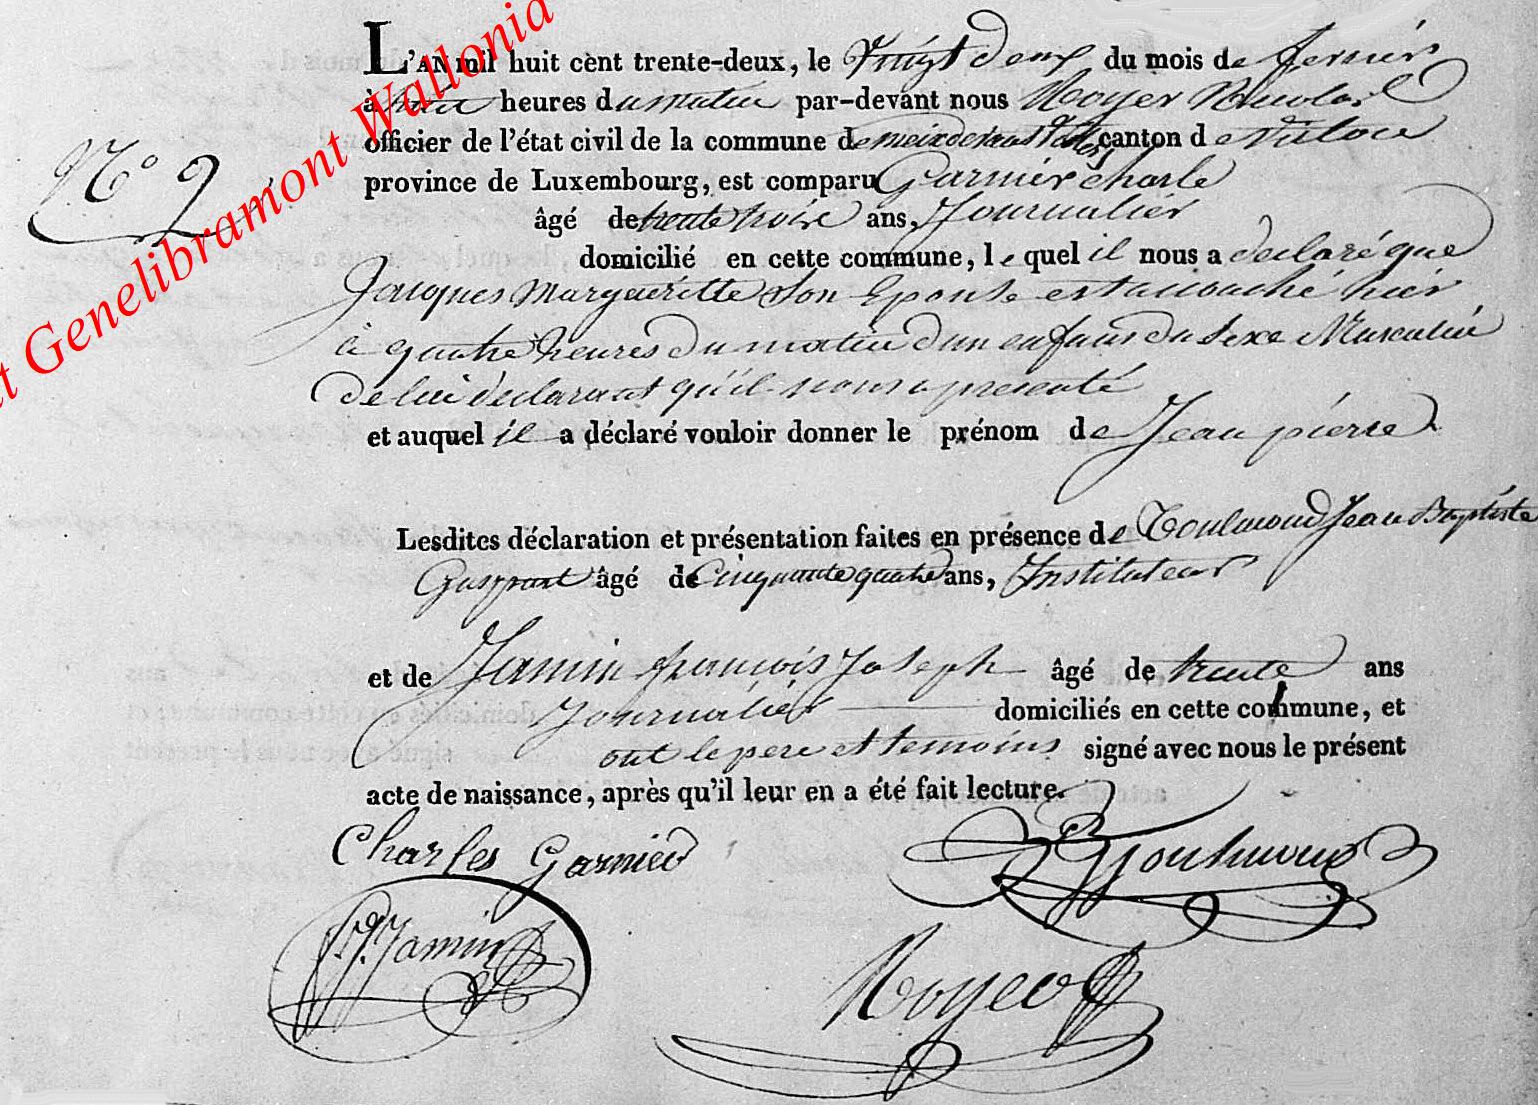 L'AN mil huit cent trente-deux, le vingt deux du mois de fevrier
à huit heures du matin par-devant nous Noyer Nicolas
officier de l'état civil de la commune de meix devant virton canton de virton
province de Luxembourg, est comparu Garnier charle
N° 2
âgé de trente trois ans, Journalier
domicilié en cette commune, le quel il nous a declaré que
Jacques Margueritte son Epouse est accouché hier
à quatre heures du matin d'un enfant du sexe Masculin
de lui declarant qu'il nous a presenté
et auquel il a déclaré vouloir donner le prénom de Jean pierre
Lesdites déclaration et présentation faites en présence de Toulmond Jean Baptiste
Gaspart âgé de Cinquante quatre ans, Instituteur
et de Jamin francois Joseph âgé de trente ans
Journalier domiciliés en cette commune, et
ont le pere et temoins signé avec nous le présent
acte de naissance, après qu'il leur en a été fait lecture.
Charles Garnier
Toulmond
f. J. Jamin
Noyer
Genelibramont Wallonia